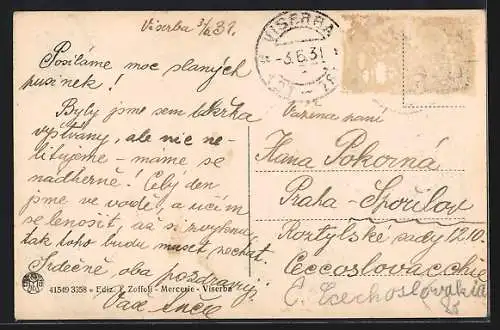 Viserba 3/6 31.
Posíláme moc slaných
pusinek!
Byly jsme sem takřka
vyštvány, ale nic ne-
litujeme - máme se
nádherně! Celý den
jsme ve vodě, a učím
se lenošit až si zvyknu,
tak toho budu muset nechat.
Srdečně oba pozdravuj
Vaše
41549 3358 - Ediz. P. Zoffoli - Mercerie - Viserba
VISERBA
-3.6.31
Vážená paní
Hana Pokorná
Praha - Spořilov
Roztylské sady 1210.
Ceccoslovacchia
Č. Czechoslovakia